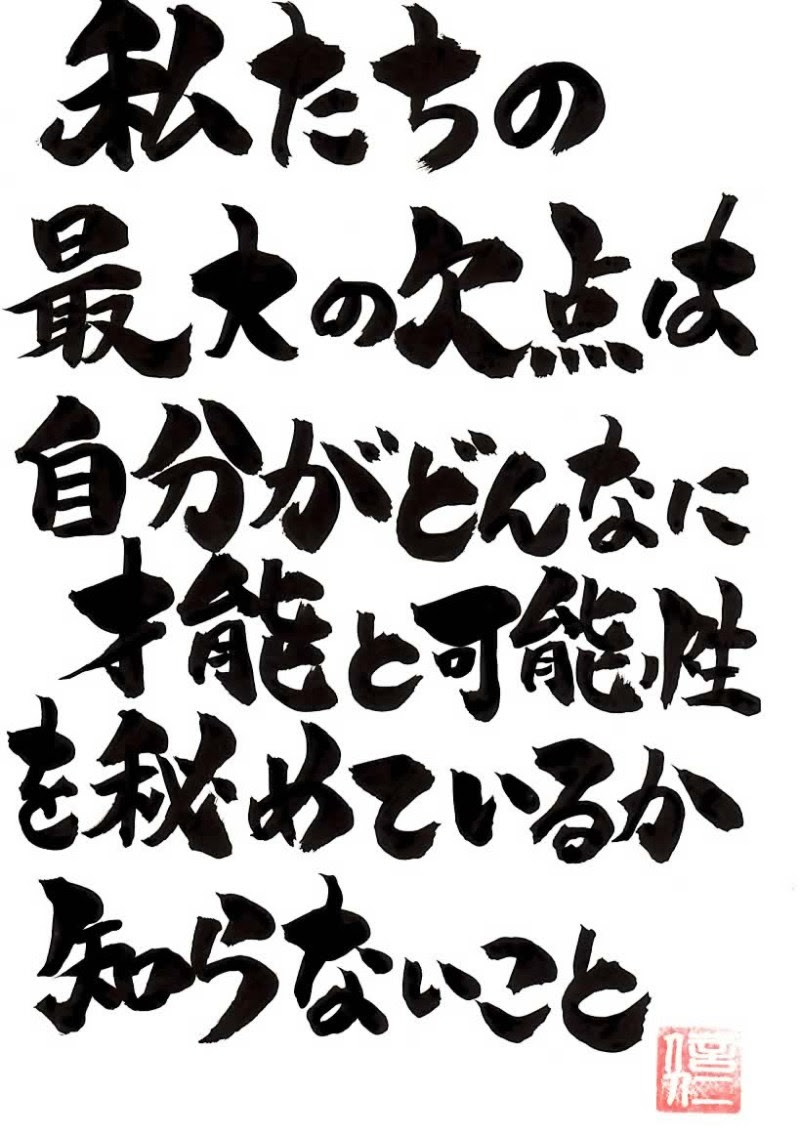 私たちの
最大の欠点は
自分がどんなに
才能と可能性
を秘めているか
知らないこと